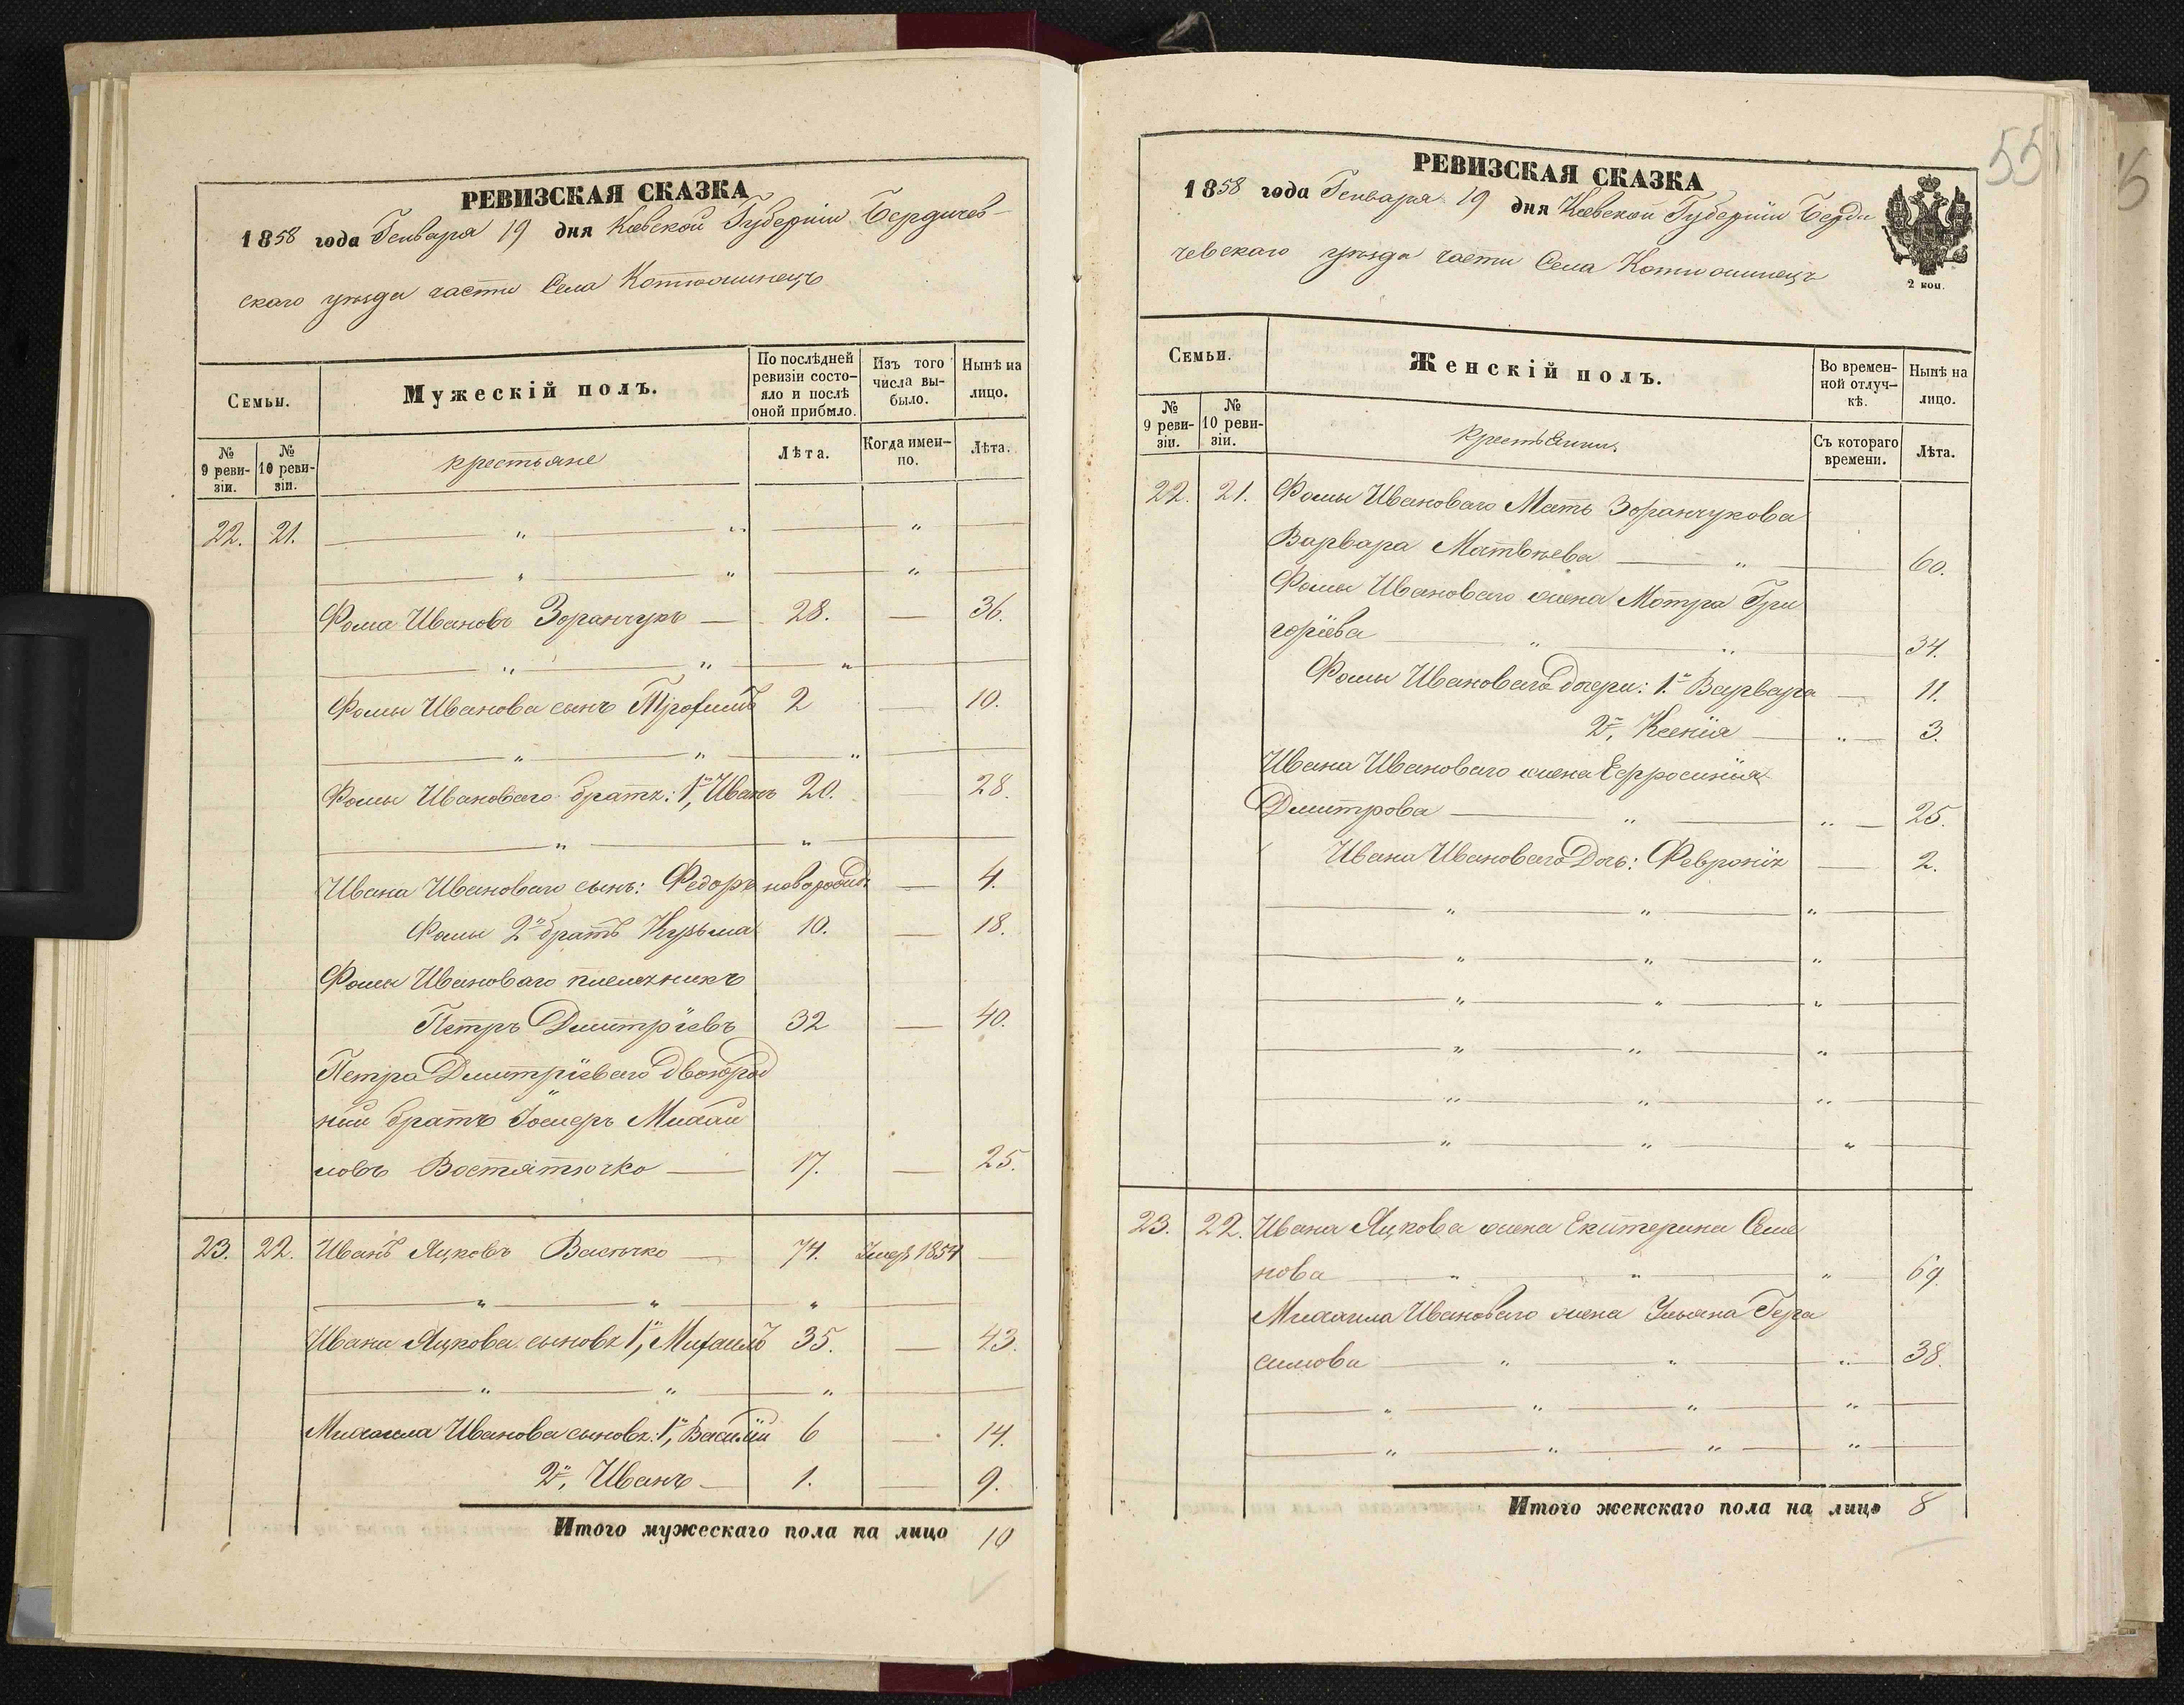 РЕВИЗСКАЯ СКАЗКА
1858 года Генваря 19 дня Кіевской Губерніи Бердичев-
скаго уѣзда части Села Котюжинецъ
Семьи.
Мужескій полъ.
По послѣдней ревизіи состояло и послѣ оной прибыло.
Изъ того числа выбыло.
Нынѣ на лицо.
№ 9 ревизіи.
№ 10 ревизіи.
крестьяне
Лѣта.
Когда именно.
Лѣта.
22. 21.
Фома Ивановъ Зоранчукъ — 28. — 36.
Фомы Иванова сынъ Трофимъ 2 — 10.
Фомы Ивановаго братъ: 1й, Иванъ 20. — 28.
Ивана Ивановаго сынъ: Федоръ новорожд. — 4.
Фомы 2й братъ Кузьма 10. — 18.
Фомы Ивановаго племянникъ
Петръ Дмитріевъ 32 — 40.
Петра Дмитріеваго двоюрод
ній братъ Іосифъ Михай
ловъ 17. — 25.
23. 22. Иванъ Яцковъ Васічко — 74. Умеръ 1854 —
Ивана Яцкова сыновья 1й, Михаилъ 35. — 43.
Михаила Иванова сыновья: 1й, Василій 6 — 14.
2й, Иванъ — 1. — 9.
Итого мужескаго пола на лицо 10
55
РЕВИЗСКАЯ СКАЗКА
1858 года Генваря 19 дня Кіевской Губерніи Берди
чевскаго уѣзда части Села Котюжинецъ
2 коп.
Семьи.
Женскій полъ.
Во временной отлучкѣ.
Нынѣ на лицо.
№ 9 ревизіи.
№ 10 ревизіи.
крестьянки.
Съ котораго времени.
Лѣта.
22. 21. Фомы Ивановаго Мать Зоранчукова
Варвара Матвѣева — 60.
Фомы Ивановаго жена Мотра Гри
горіева — 34.
Фомы Ивановаго дочери: 1я Варвара — 11.
2я, Ксенія — 3.
Ивана Ивановаго жена Ефросинія
Дмитрова — 25.
Ивана Ивановаго Дочь: Февронія — 2.
23. 22. Ивана Яцкова жена Екатерина Семе
нова — 69.
Михаила Ивановаго жена Ульяна Гера
симова — 38.
Итого женскаго пола на лицо 8